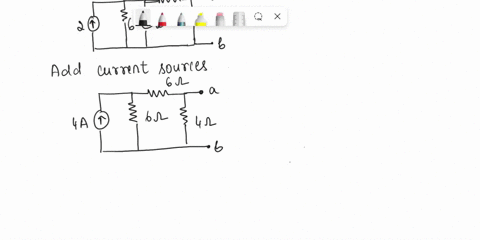 2
6
b
Add current sources
6Ω
a
4A
6Ω
4Ω
b